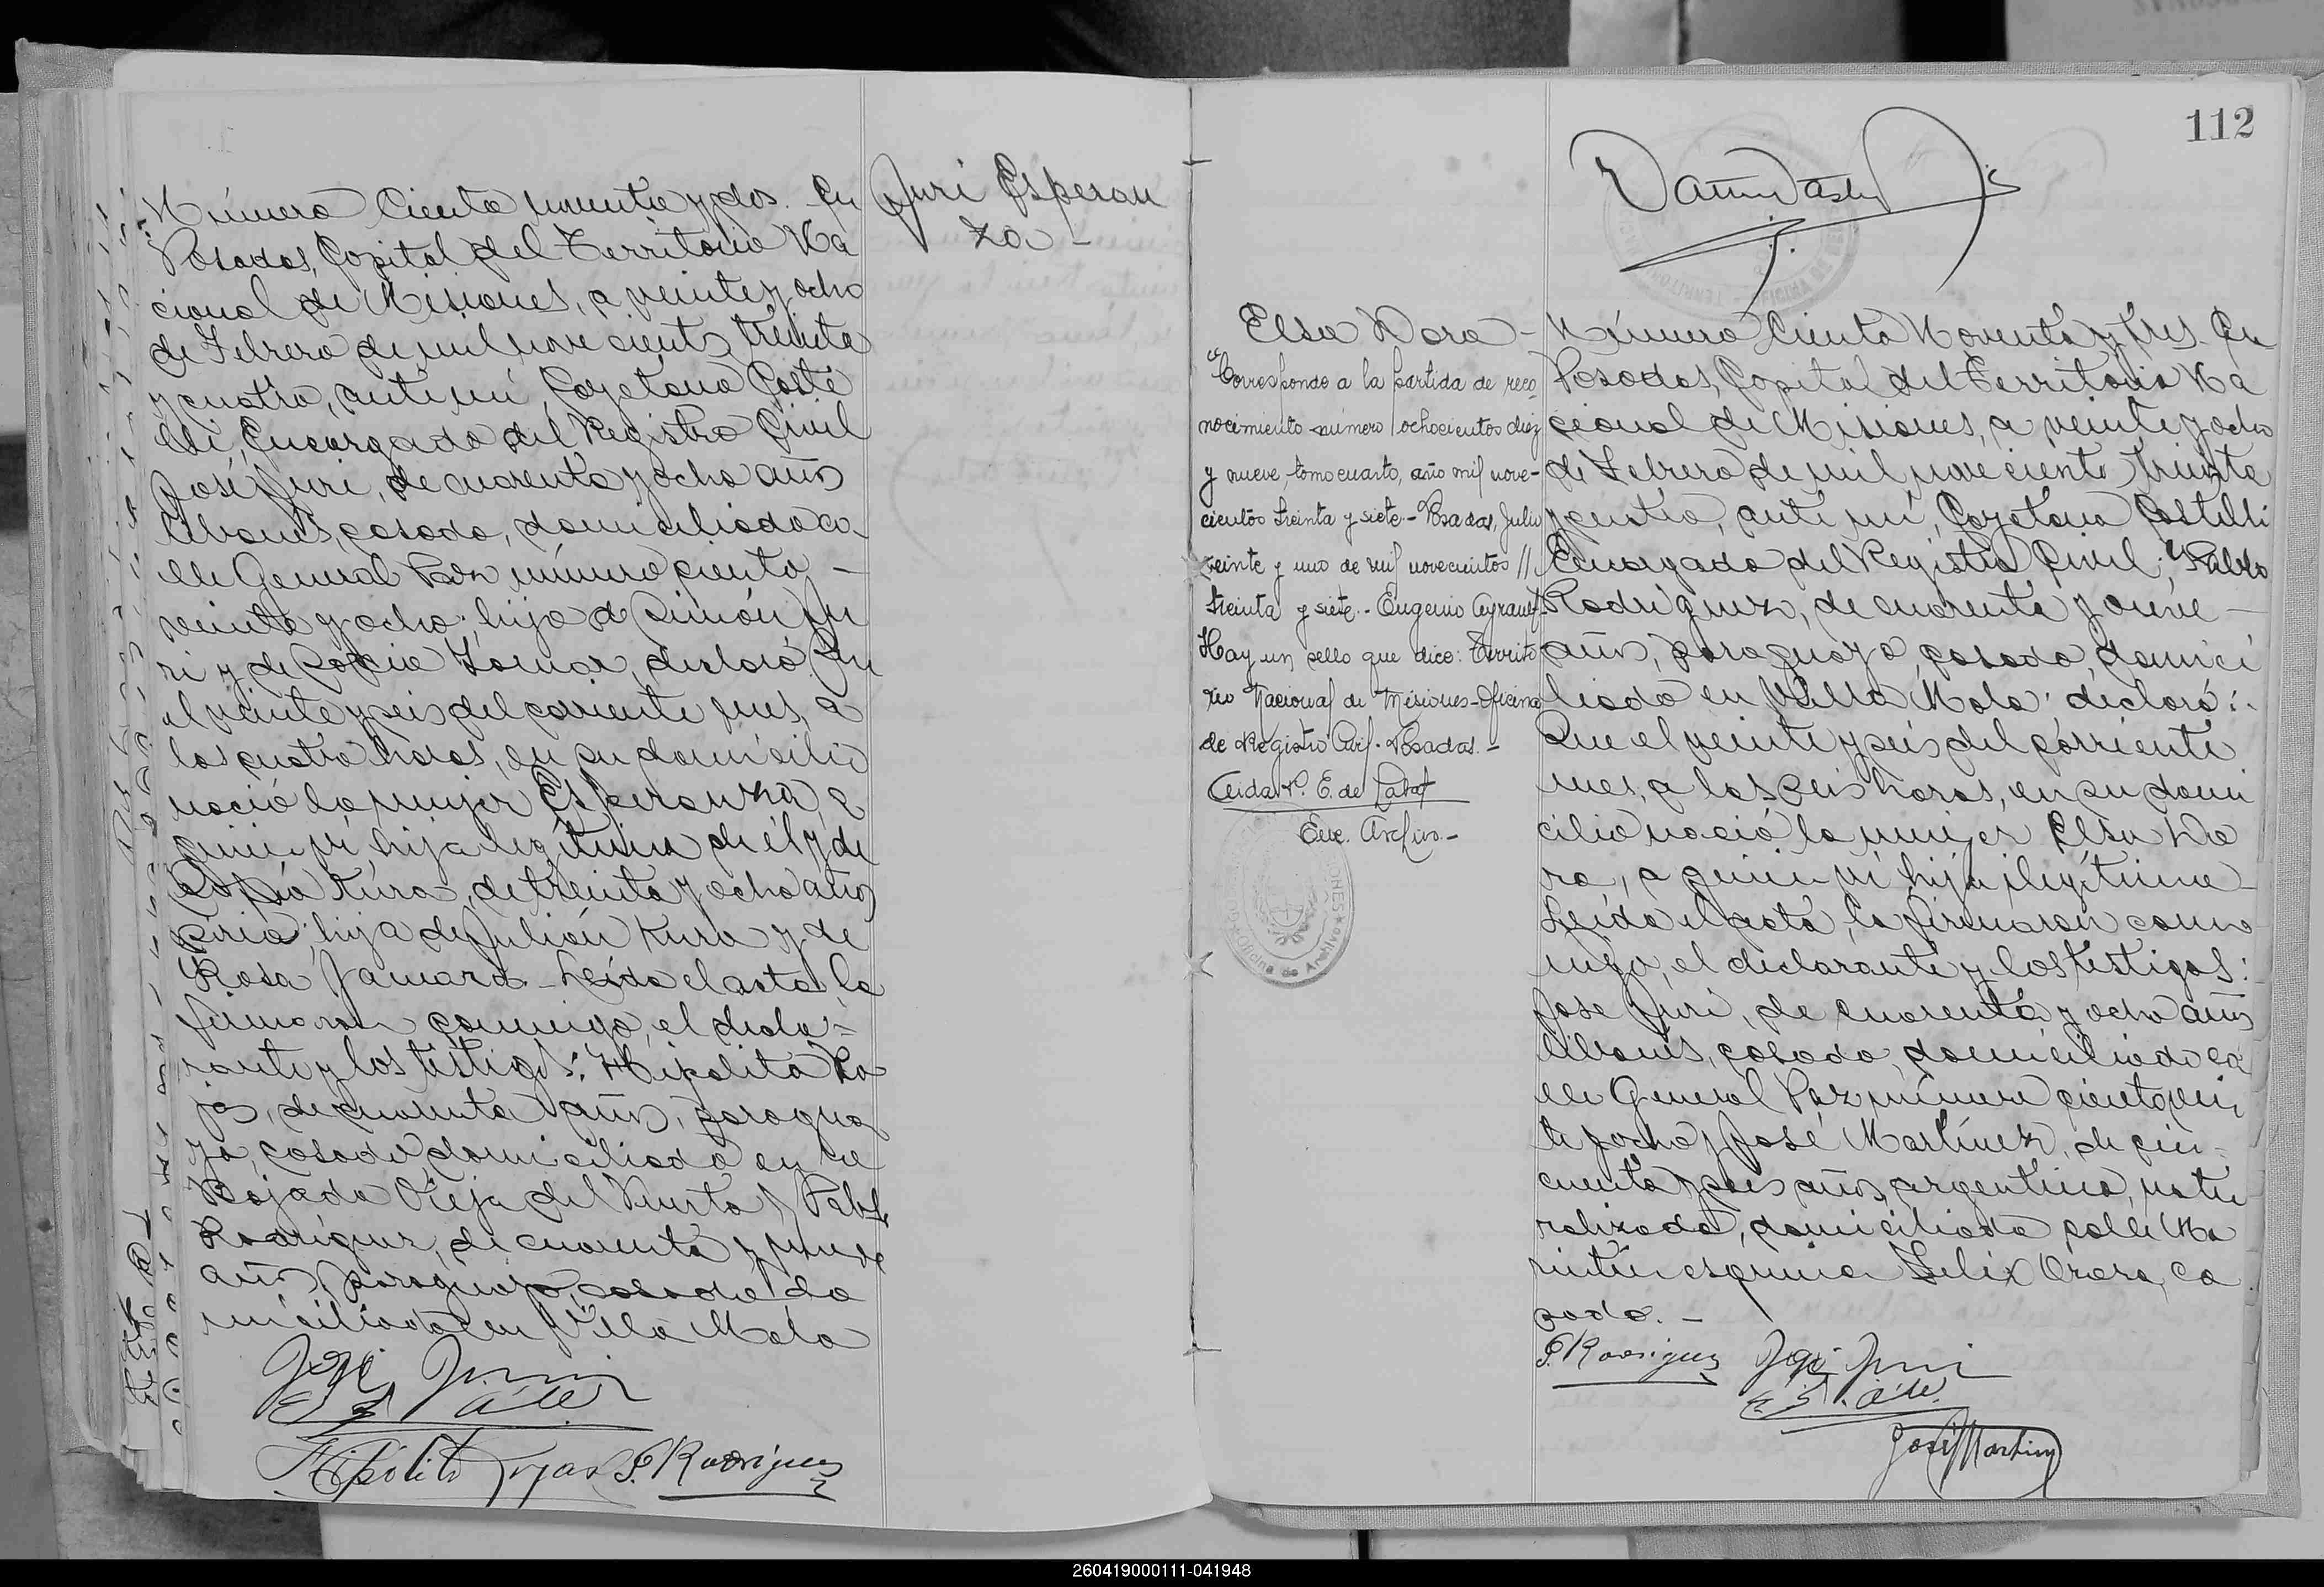 Número Ciento noventa y dos. En
Posadas, Capital del Territorio Na
cional de Misiones, a veinte y ocho
de Febrero de mil novecientos treinta
y cuatro, ante mí, Cayetano Caste
lli, Encargado del Registro Civil
José Juri, de cuarenta y ocho años
libanés, casado, domiciliado ca
lle General Paz número ciento
veinte y ocho; hijo de Simón Ju
ri y de declaró: Que
el veinte y seis del corriente mes, a
las cuatro horas, en su domicilio
nació la mujer Esperanza, a
quien ví, hija legítima de él y de
Kura, de treinta y ocho años
siria, hija de Julián Kura y de
Rosa Jamara. Leída el acta, la
firmaron conmigo, el decla-
rante y los testigos: Hipólito Ro
jas, de cuarenta años, paragua
yo, casado, domiciliado en la
Bajada Vieja del Puerto y Pablo
Rodríguez, de cuarenta y nueve
años, paraguayo, casado, do
miciliado en Villa Mola
José Juri
Hipólito Rojas P. Rodriguez
Juri Esperan
za -
112
Elsa Dora -
"Corresponde a la partida de reco
nocimiento número ochocientos diez
y nueve, tomo cuarto, año mil nove-
cientos treinta y siete.- Posadas, Julio
veinte y uno de mil novecientos //
treinta y siete.- Eugenio
Hay un sello que dice: Territo
rio Nacional de Misiones - Oficina
de Registro Civil - Posadas. -
E. de
Enc. Archivo -
Oficina de Archivo
Número Ciento Noventa y tres. En
Posadas, Capital del Territorio Na
cional de Misiones, a veinte y ocho
de Febrero de mil novecientos treinta
y cuatro, ante mí, Cayetano Castelli
Encargado del Registro Civil; Pablo
Rodríguez, de cuarenta y nueve
años, paraguayo, casado, domici
liado en Villa Mola; declaró:
Que el veinte y seis del corriente
mes, a las seis horas, en su domi
cilio nació la mujer Elsa Do
ra, a quien ví hija ilegítima
Leída el acta, la firmaron con
migo, el declarante y los testigos:
José Juri, de cuarenta y ocho años
libanés, casado, domiciliado ca
lle General Paz número ciento vein
te y ocho y José Martínez, de cin-
cuenta y seis años, argentino, natu
ralizado, domiciliado calle
esquina Felix ca
sado. -
P. Rodriguez José Juri
José Martinez
260419000111-041948